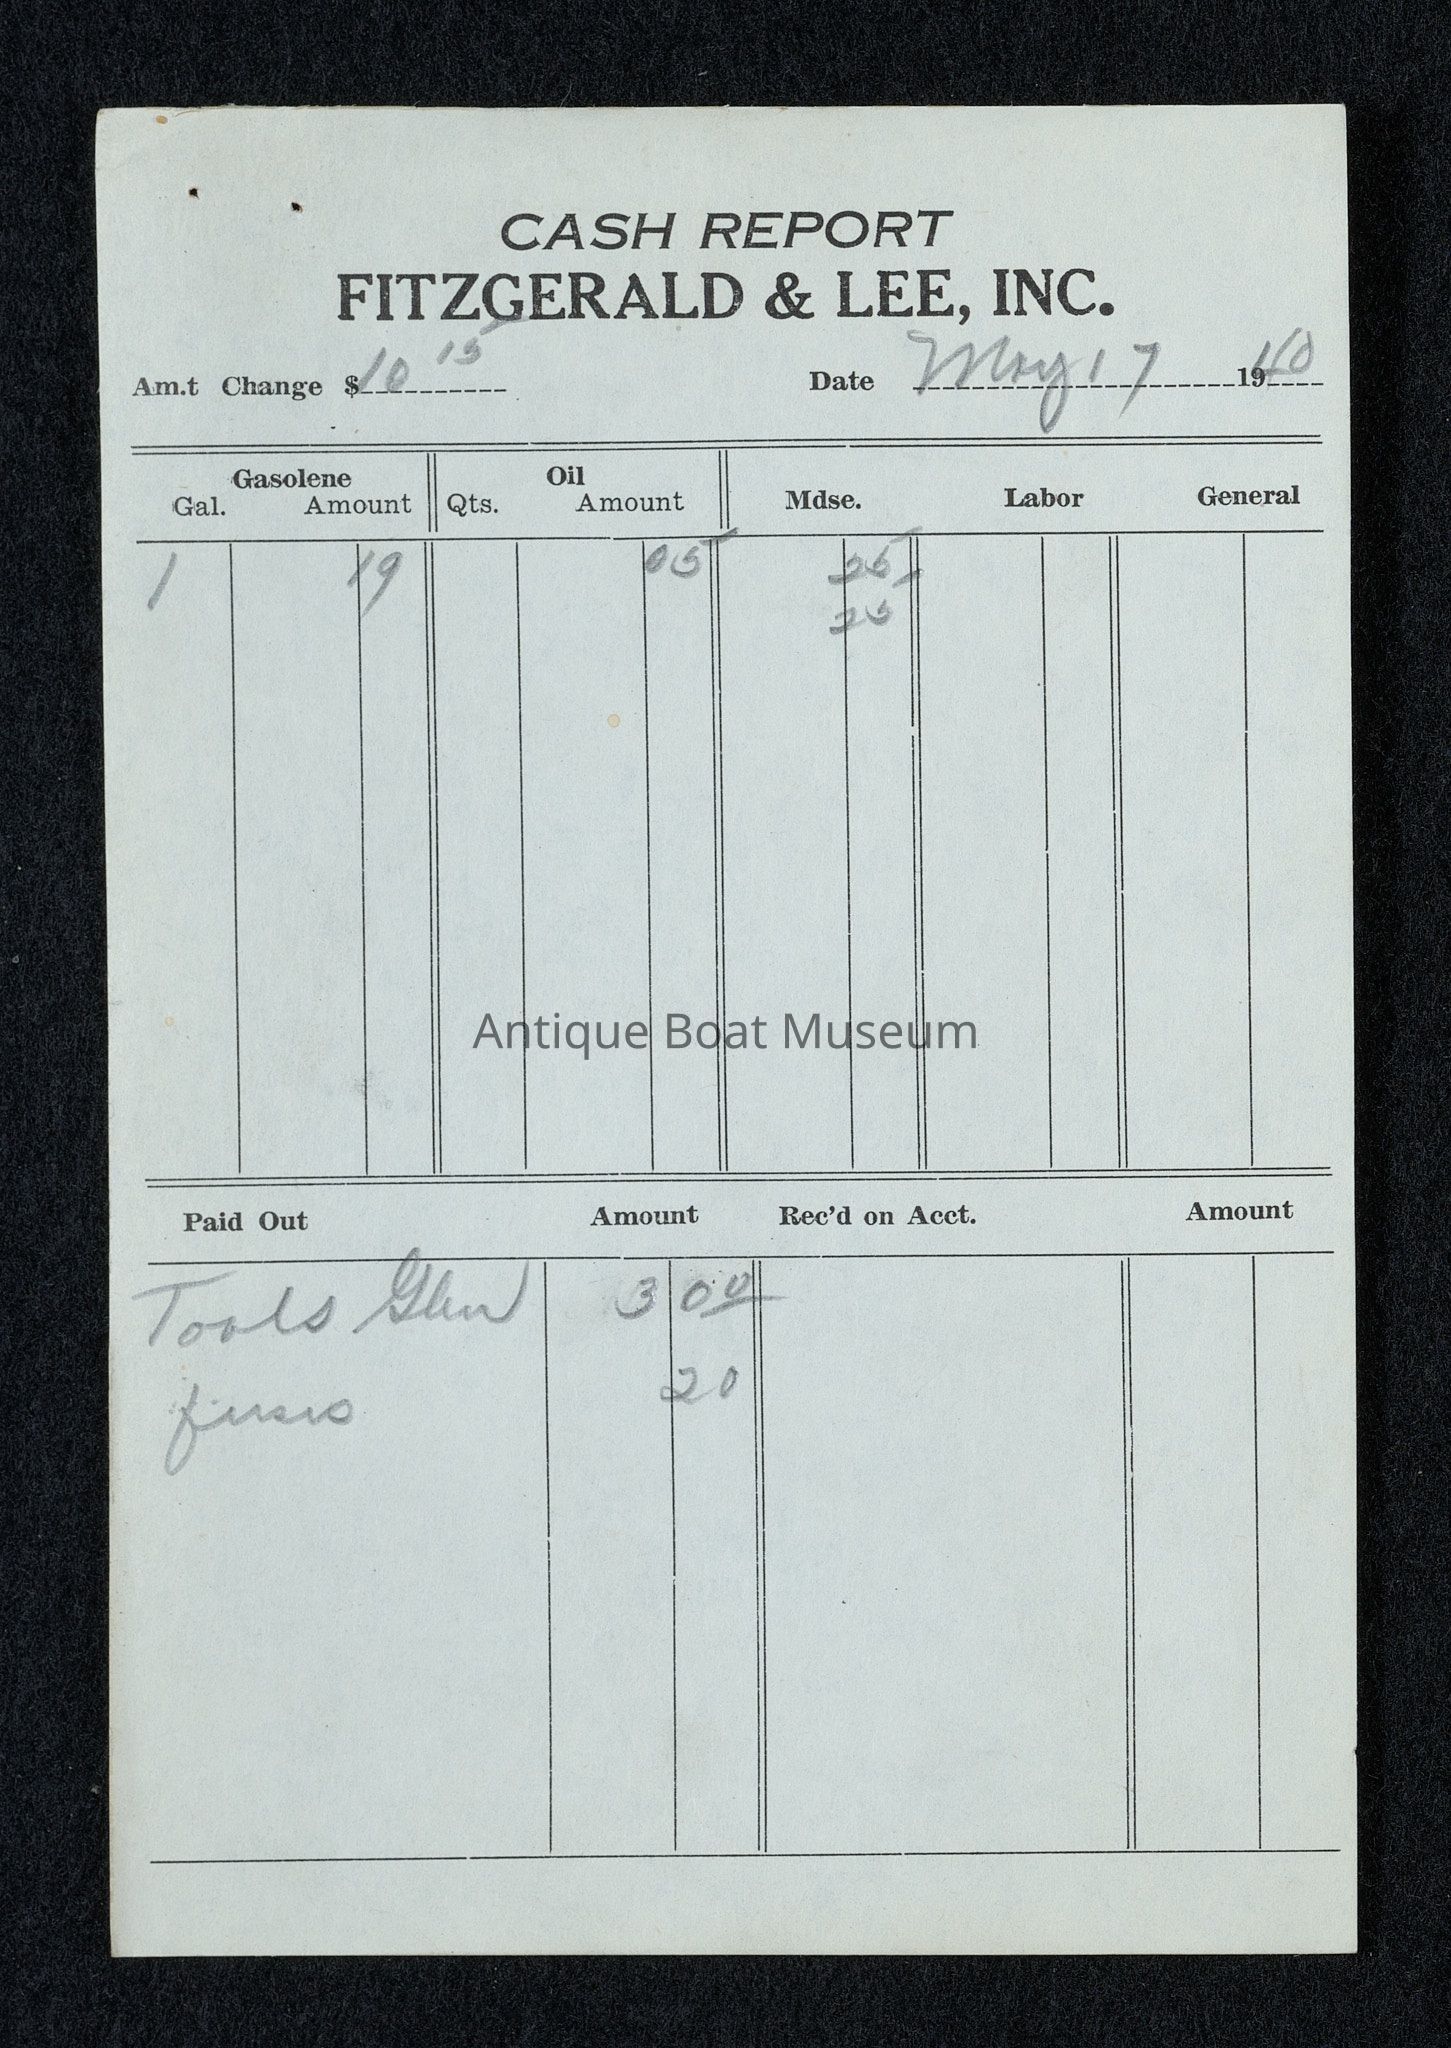 CASH REPORT
FITZGERALD & LEE, INC.
Am.t Change $10 15 Date May 17 1940
Gasolene Oil
Gal. Amount Qts. Amount Mdse. Labor General
1 19 05 25
25
Antique Boat Museum
Paid Out Amount Rec'd on Acct. Amount
Tools Glen 3 00
fuses 20